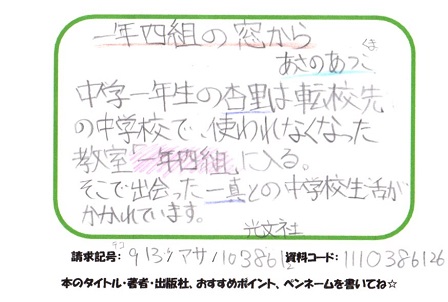 一年四組の窓から
あさのあつこ
中学一年生の杏里は転校先
の中学校で、使われなくなった
教室「一年四組」に入る。
そこで出会った一真との中学校生活が
かかれています。
光文社
請求記号: 913 アサ 資料コード: 1110386126
本のタイトル・著者・出版社、おすすめポイント、ペンネームを書いてね☆